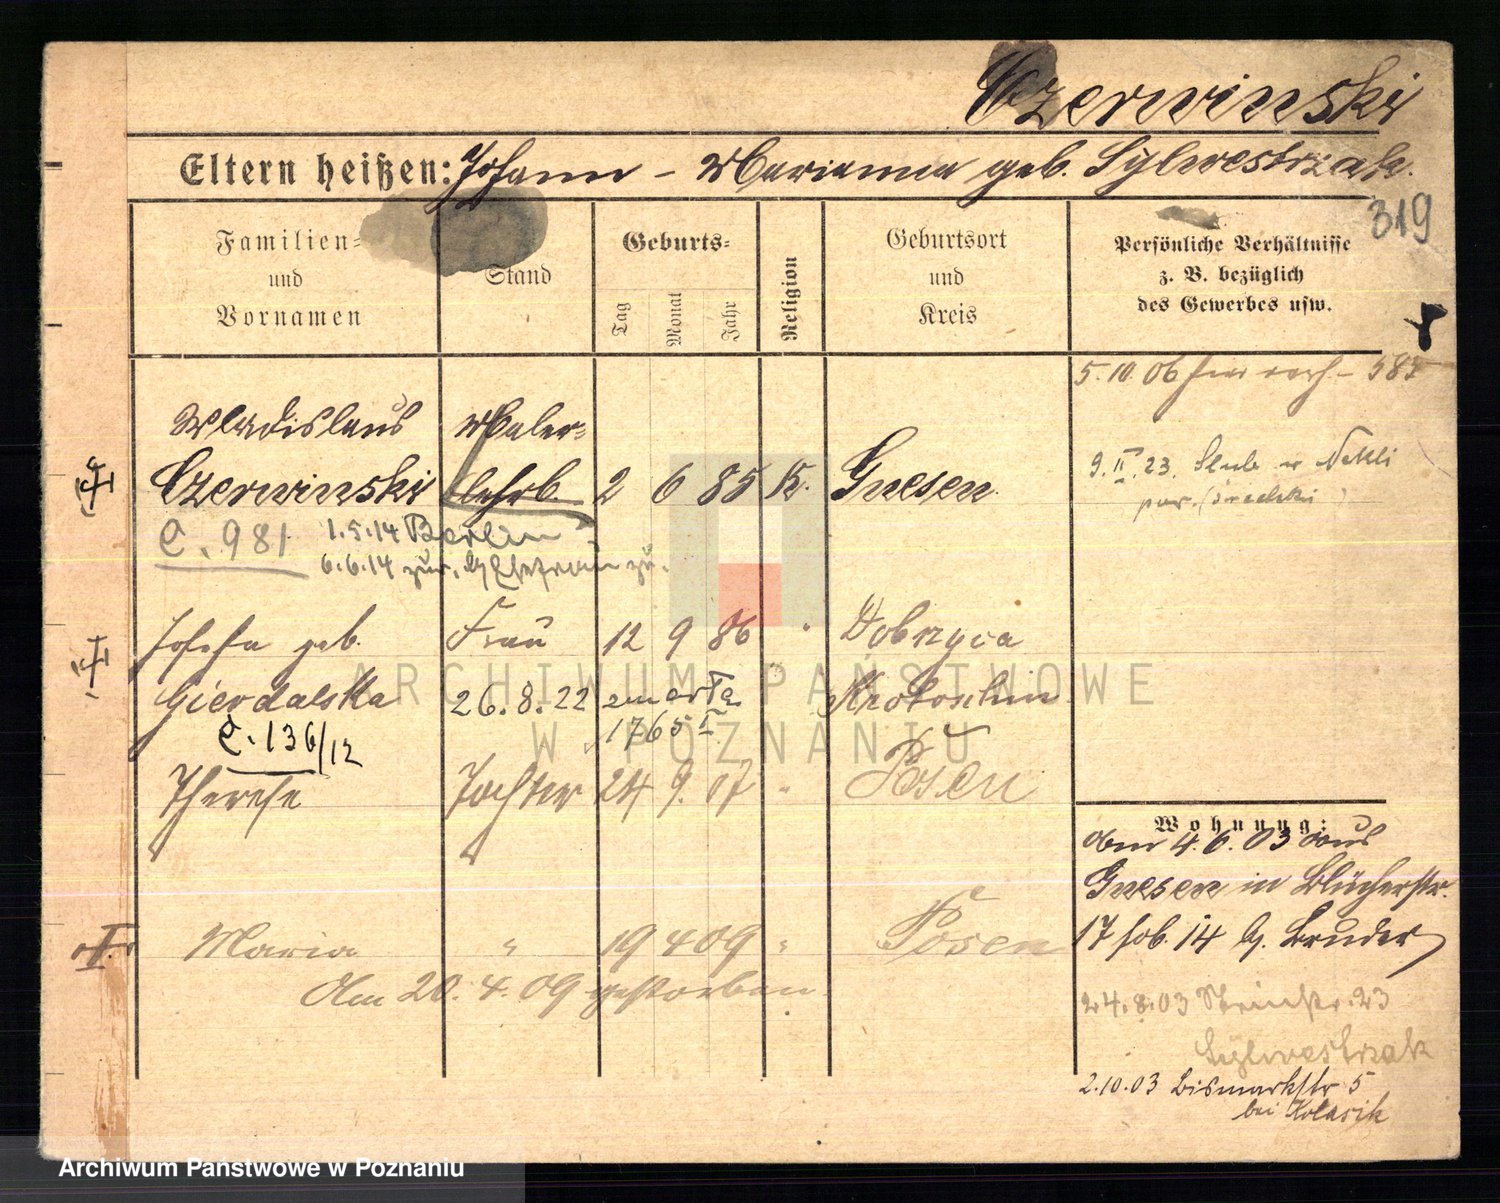 Czerwinski
Eltern heißen: Johann – Marianna geb. Sylwestrzak.
319
Familien= und Vornamen
Stand
Geburts=
Tag
Monat
Jahr
Religion
Geburtsort und Kreis
Persönliche Verhältnisse z. B. bezüglich des Gewerbes usw.
5. 10. 06
Wladislaus Maler=
Czerwinski lehrl. 2 6 85 K. Gnesen
9. II. 23.
C. 981 1.5.14 Berlin
6.6.14 zur.
Josefa geb. Frau 12 9 86 " Dobrzyca
Gierdalska 26.8.22 zmarła Krotoschin
1765 II
C. 136/12
Therese Tochter 24 9. 07 " Posen
Wohnung:
am 4. 6. 03 aus
Gnesen in Blücherstr.
17 Hob. 14 b. Bruder
Maria " 19 4 09 " Posen
Am 20. 4. 09 gestorben
24. 8. 03 23
Sylwestrzak
2.10.03 Bismarkstr 5
bei Kolasik
ARCHIWUM PAŃSTWOWE
W POZNANIU
Archiwum Państwowe w Poznaniu